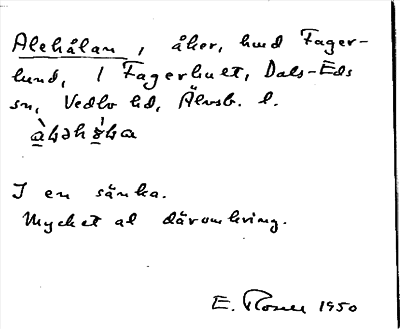 Alehålan, åker, hmd Fager-
lund, 1 Fagerhult, Dals-Eds
sn, Vedbo hd, Älvsb. l.
I en sänka.
Mycket al däromkring.
E. 1950